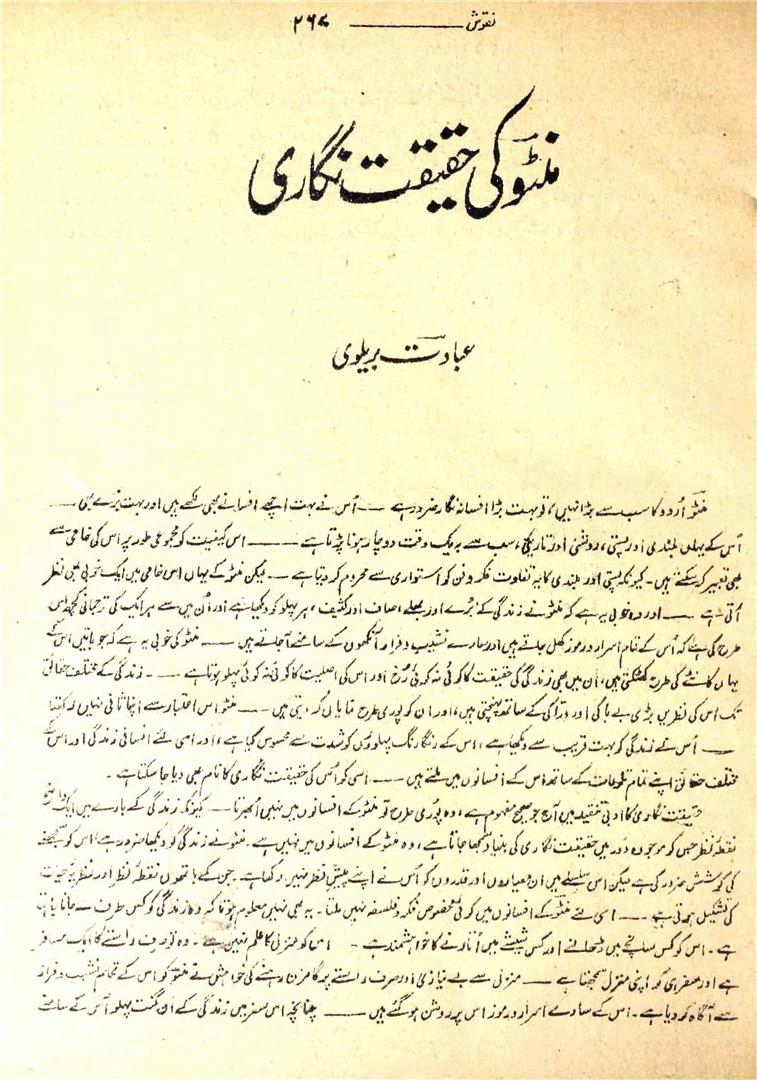 نقوش ــــــــــــ ۲۶۷
منٹو کی حقیقت نگاری
عبادت بریلوی
منٹو اُردو کا سب سے بڑا نہیں، تو بہت بڑا افسانہ نگار ضرور ہے — اُس نے بہت اچھے افسانے بھی لکھے ہیں اور بہت بُرے بھی —
اُس کے یہاں بلندی اور پستی، روشنی اور تاریکی، سب سے بہ یک وقت دوچار ہونا پڑتا ہے — اس کیفیت کو مجموعی طور پر اس کی خامی سے
بھی تعبیر کر سکتے ہیں۔ کیونکہ پستی اور بلندی کا یہ تفاوت فکر و فن کو استواری سے محروم کر دیتا ہے — لیکن منٹو کے یہاں اس خامی میں ایک خوبی بھی نظر
آتی ہے — اور وہ خوبی یہ ہے کہ منٹو نے زندگی کے بُرے اور بھلے، صاف اور کثیف، ہر پہلو کو دیکھا ہے اور اُن میں سے ہر ایک کی ترجمانی کچھ اس
طرح کی ہے کہ اُس کے تمام اسرار و رموز کھل جاتے ہیں اور سارے نشیب و فراز آنکھوں کے سامنے آ جاتے ہیں — منٹو کی خوبی یہ ہے کہ جو باتیں اس کے
یہاں کانٹے کی طرح کھٹکتی ہیں، اُن میں بھی زندگی کی حقیقت کا کوئی نہ کوئی رُخ اور اس کی اصلیت کا کوئی نہ کوئی پہلو ہوتا ہے —۔ زندگی کے مختلف حقائق
تک اس کی نظریں بڑی بے باکی اور درّاکی کے ساتھ پہنچتی ہیں، اور ان کو پوری طرح نمایاں کر دیتی ہیں — منٹو اس اعتبار سے اپنا ثانی نہیں رکھتا
— اُس نے زندگی کو بہت قریب سے دیکھا ہے، اس کے رنگا رنگ پہلوؤں کو شدت سے محسوس کیا ہے، اور اسی لئے انسانی زندگی اور اس کے
مختلف حقائق اپنے تمام لوازمات کے ساتھ اس کے افسانوں میں ملتے ہیں — اسی کو اُس کی حقیقت نگاری کا نام بھی دیا جا سکتا ہے۔
حقیقت نگاری کا ادبی تنقید میں آج جو صحیح مفہوم ہے، وہ پوری طرح تو منٹو کے افسانوں میں نہیں اُبھرتا — کیونکہ زندگی کے بارے میں ایک واضح
نقطۂ نظر جس کو موجودہ دَور میں حقیقت نگاری کی بنیاد سمجھا جاتا ہے، وہ منٹو کے افسانوں میں نہیں ہے۔ منٹو نے زندگی کو دیکھا ضرور ہے، اس کو سمجھنے
کی کوشش ضرور کی ہے لیکن اس سلسلے میں ان معیاروں اور قدروں کو اُس نے اپنے پیشِ نظر نہیں رکھا ہے۔ جن کے ہاتھوں نقطۂ نظر اور نظریۂ حیات
کی تشکیل ہوتی ہے — اسی لئے منٹو کے افسانوں میں کوئی مخصوص فکر و فلسفہ نہیں ملتا۔ یہ بھی نہیں معلوم ہوتا کہ وہ زندگی کو کس طرف لے جانا چاہتا
ہے۔ اس کو کس سانچے میں ڈھالنے اور کس شیشے میں اُتارنے کا خواہشمند ہے — اس کو منزل کا علم نہیں ہے۔ وہ تو صرف راستے کا ایک مسافر
ہے اور سفر ہی کو اپنی منزل سمجھتا ہے — منزل سے بے نیازی اور صرف راستے پر گامزن رہنے کی خواہش نے منٹو کو اس کے تمام نشیب و فراز
سے آگاہ کر دیا ہے۔ اس کے سارے اسرار و رموز اس پر روشن ہو گئے ہیں — چنانچہ اس سفر میں زندگی کے اَن گنت پہلو اُس کے سامنے